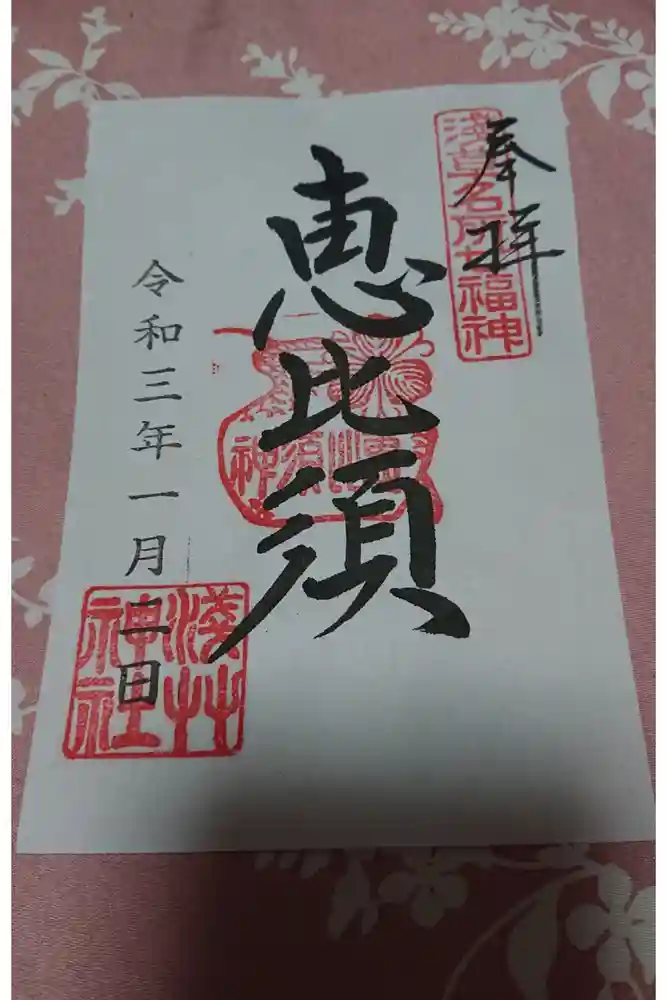 奉拝
浅草名所七福神
恵比須
恵比須神
令和三年一月二日
浅草神社